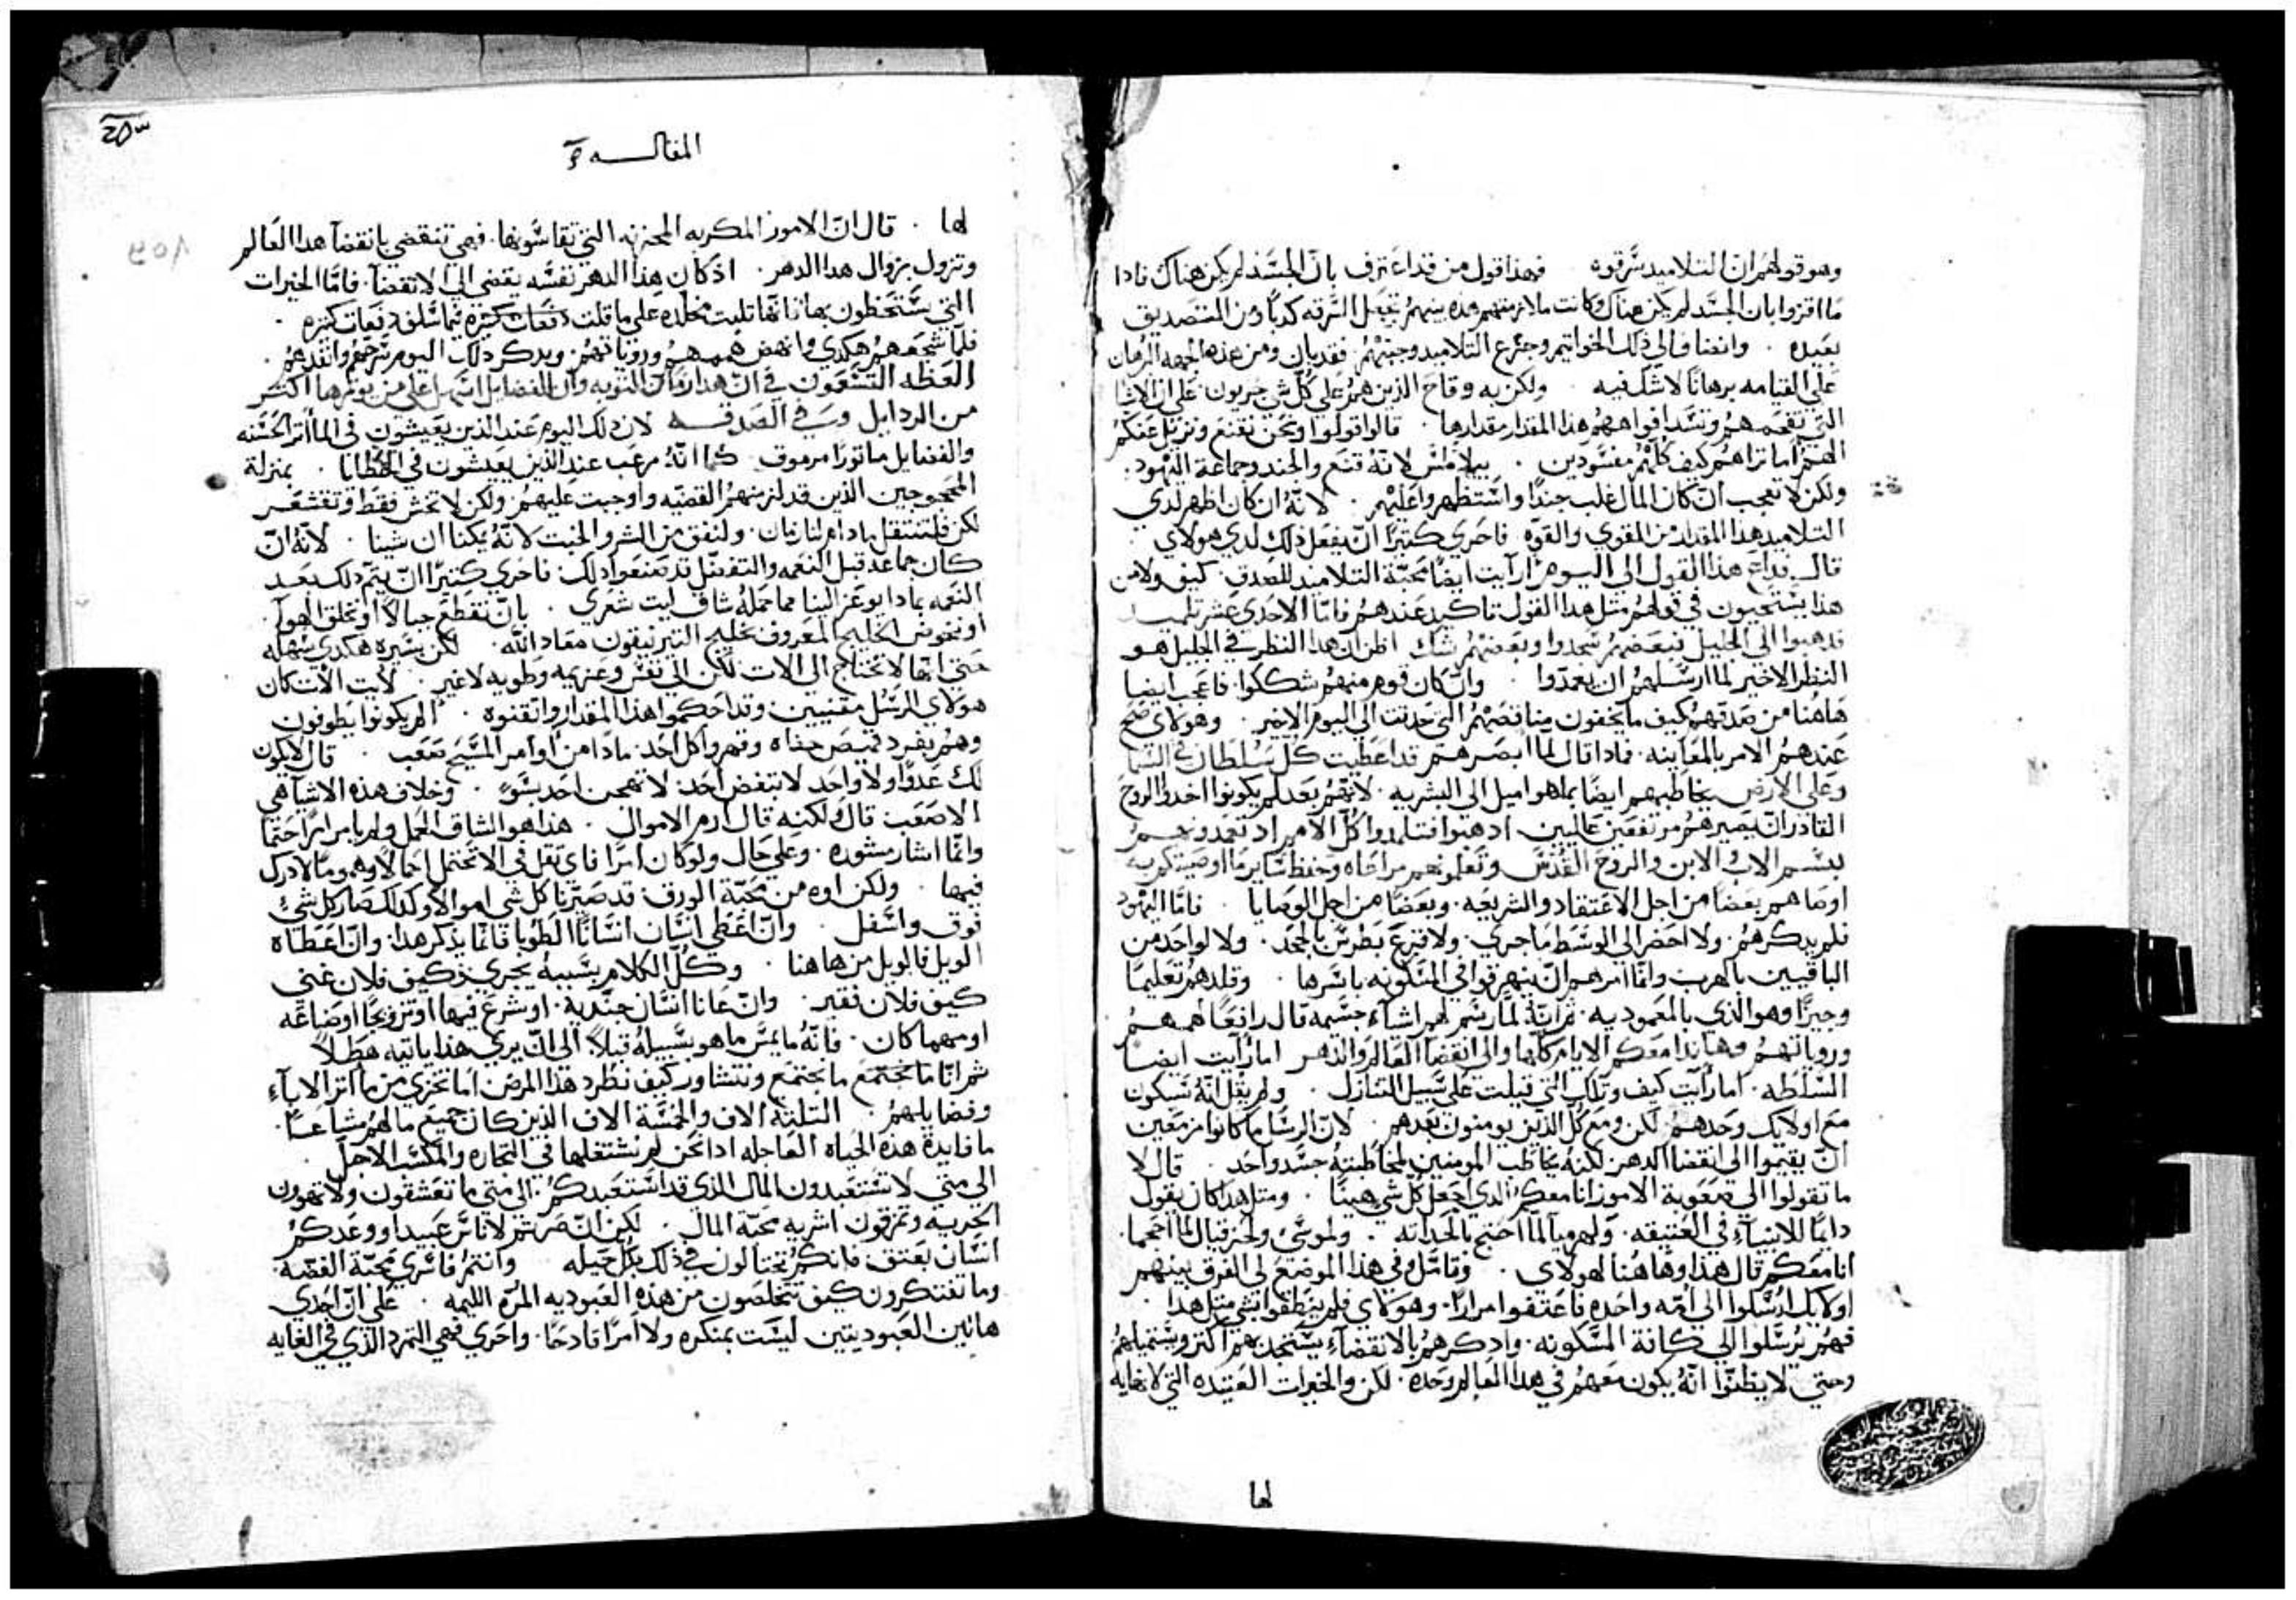 وهو قولهم ان التلاميد سرقوه فهذا قول من قد اعترف بان الجسد لم يكن هناك فاذا
ما اقروا بان الجسد لم يكن هناك وكانت ملازمتهم وحده تجعل السرقه كدبا ومن التصديق
بعيده وايضا في ذلك الخواتيم وجزع التلاميد وجبنهم فقد بان ومن هذه الجهه البرهان
على القيامه برهانا لا شك فيه ولكن به وقاح الذين هم على كل شي جريون على ان الاشيا
التي تفحمهم وتسد افواههم هذا المقدار مقدارها قالوا قولوا ونحن نقنع ونزيل عنكم
الهم اما تراهم كيف كلهم مفسودين بيلاطس لانه قنع والجند وجماعة اليهود
ولكن لا تعجب ان كان المال غلب جندا واستظهر عليهم لانه ان كان اظهر لدي
التلاميد هذا المقدار من القوي والقوه فاحري كثيرا ان يفعل ذلك لدي هولاي
قال فداع هذا القول الى اليوم ارايت ايضا محبة التلاميد للصدق كيف ولا من
هذا يستحيون في قولهم مثل هدا القول تاكيد عندهم فاما الاحدى عشر تلميد
فدهبوا الى الجليل فبعضهم سجدوا وبعضهم شك اظن ان هدا النظر في الجليل هو
النظر الاخير لما ارسلهم ان يعمدوا وان كان قوم منهم شككوا فاعجب ايضا
هاهنا من صدقهم كيف ما يخفون مناقصهم التي حدتت الى اليوم الاخير وهولاي صح
عندهم الامر بالمعاينه فاذا قال لما ابصرهم قد اعطيت كل سلطان في السما
وعلى الارض يخاطبهم ايضا بما هو اميل الى البشريه لانهم بعد لم يكونوا اخدوا الروح
القادر ان يصيرهم مرتفعين عاليين ادهبوا فتلمدوا كل الامم اد تعمدونهم
بسم الاب والابن والروح القدس وتعلمونهم مراعاه وحفظ ساير ما اوصيتكم به
اوصاهم بعضا من اجل الاعتقاد والشريعه وبعضا من اجل الوصايا فاما اليهود
فلم يدكرهم ولا احضر الى الوسط ما جري ولا قرع بطرس بالجحد ولا لواحد من
الباقيين بالهرب وانما امرهم ان يتفرقوا في المسكونه باسرها وقلدهم تعليما
وجيزا وهو الذي بالمعموديه ثم انه لما رسم لهم اشيآء جسيمه قال رافعا لهممهم
وروياتهم وهانذا معكم الايام كلها والى انقضآ العالم والدهر اما رايت ايضا
السلطه اما رايت كيف وتلك التي قيلت على سبيل التنازل ولم يقل انه سيكون
مع اولايك وحدهم لكن ومع كل الذين يومنون بعدهم لان الرسل ما كانوا مزمعين
ان يقيموا الى انقضا الدهر لكنه يخاطب المومنين لمخاطبته جسد واحد قال لا
ما تقولوا الي صعوبة الامور انا معكم الدي اجعل كل شي هينا ومثل هدا كان يقول
دايما للانبيآء في العتيقه ولارميا لما احتج بالحداثه ولموسى ولحزقيال لما احجما
انا معكم قال هدا وهاهنا لهولاي وتامل وفي هذا الموضع لي الفرق بينهم
اولايك ارسلوا الى امه واحده فاعتفوا مرارا وهولاي فلم ينطقوا بشي مثل هدا
فهم يرسلوا الى كافة المسكونه وادكرهم بالانقضآء يستجدبهم اكثر ويستميلهم
وحتى لا يظنوا انه يكون معهم في هدا العالم وحده لكن والخيرات العتيده التي لا نهايه
لها
المقالسه
لها قال ان الامور المكربه المحزنه التي تقاسونها فهي تنقضي بانقضآ هدا العالم
وتزول بزوال هدا الدهر اذ كان هذا الدهر نفسه يفضي الى الانقضآ فاما الخيرات
التي ستحظون بها فانها تلبت مخلده على ما قلت دفعات كثيره فيما سلف دفعات كثيره
فلما شجعهم هكدي وانهض هممهم وروياتهم وبدكر دلك اليوم سرحهم وانفدهم
العظه التسعون في ان هدا زمان التوبه وان الفضايل اسهل على من يوثرها اكتر
من الردايل وفي الصدقه لان دلك اليوم عند الذين يعيشون في الماثر الحسنه
والفضايل ماثورا مرموق كما انه مرعب عند الذين يعيشون في الخطايا بمنزلة
المحجوجين الذين قد لزمتهم القضيه واوجبت عليهم ولكن لا نخش فقط ونقشعر
لكن فلننتقل ما دام لنا زمان ولنفق من الشر والخبث لانه يمكنا ان شينا لانه ان
كان جماعه قبل النعمه والتفضل قد صنعوا دلك فاحري كثيرا ان يتم دلك بعد
النعمه بماذا يوعز الينا مما حمله شاق ليت شعري بان نقطع جبالا او نحلق الهوآ
او نخوض الخليج المعروف بخليج التيرنيقون معاد الله لكن بسيره هكدي سهله
حتى انها لا تحتاج الى الات لكن الى نفس وعزيمه وطويه لا غير لايت الات كان
هولاي الرسل مقتنيين وقد احكموا هذا المقدار واتقنوه الم يكونوا يطوفون
وهم بفرد قميص حفاه وقهروا كل احد مادا من اوامر المسيح صعب قال لا يكون
لك عدوا ولا واحد لا تبغض احد لا تهجن احد بسوء وخلاف هذه الاشيآ هي
الاصعب قال لكنه قال ارم الاموال هذا هو الشاق الحمل ولم يامر امرا حتما
وانما اشار مشوره وعلى حال ولو كان امرا فاي ثقل في الا تحتمل احمالا وهموما لا درك
فيها ولكن اوه من محبة الورق قد صيرنا كل شي اموالا وكدلك صار كل شي
فوق واسفل وان اغطى انسان انسانا الطوبا فانما يذكر هدا وان اعطاه
الويل فالويل من هاهنا وكل الكلام بسببه يجري كيف فلان غني
كيف فلان فقير وان عانا انسان جنديه او شرع فيها او تزويجا او صناعه
او مهما كان فانه ما يمس ما هو بسبيله قبلا الى ان يري هذا ياتيه هطلا
ثم انا ما نجتمع ما نجتمع ونتشاور كيف نطرد هدا المرض اما نخزي من ماثر الابآء
وفضايلهم الثلثه الاف والخمسة الاف الذين كان جميع مالهم مشاعا
ما فايدة هذه الحياه العاجله ادا نحن لم نشتغلها في التجاره والمكسب الاجل
الى متى لا تستعبدون المال الذي قد استعبدكم الى متى ما تعشقون ولا تهوون
الحريه وتمزقون اشريه محبة المال لكن ان صرتم لاناس عبيدا ووعدكم
انسان بعتق فانكم تحتالون في ذلك بكل حيله وانتم فاسري محبة الفضه
وما تفتكرون كيف تتخلصون من هذه العبوديه المره اليمه على ان احدى
هاتين العبوديتين ليست بمنكره ولا امرا فادحا واحري فهي التمرد الذي في الغايه